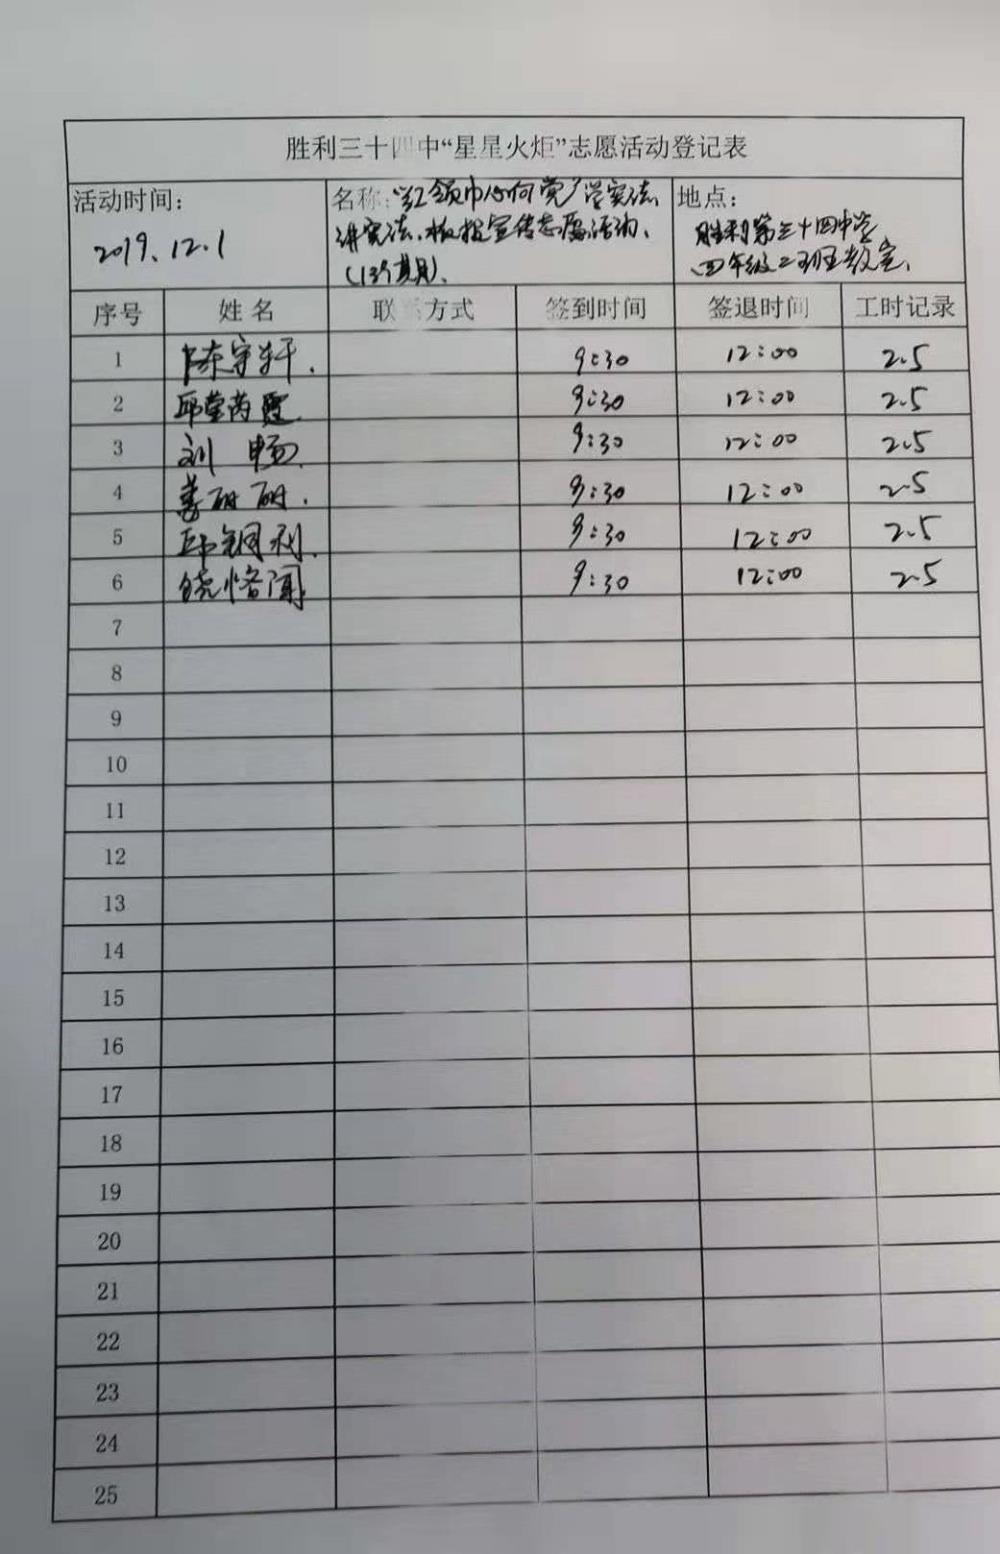 胜利三十四中“星星火炬”志愿活动登记表
活动时间：
2019.12.1
名称：“红领巾心向党”学宪法
讲宪法、板报宣传志愿活动、
地点：
胜利第三十四中学
四年级二班教室.
序号 姓名 联系方式 签到时间 签退时间 工时记录
1 陈宇轩. 9:30 12:00 2.5
2 邱莹芮 9:30 12:00 2.5
3 刘畅. 9:30 12:00 2.5
4 姜丽丽. 9:30 12:00 2.5
5 邱钢利. 9:30 12:00 2.5
6 饶恪闻 9:30 12:00 2.5
7
8
9
10
11
12
13
14
15
16
17
18
19
20
21
22
23
24
25